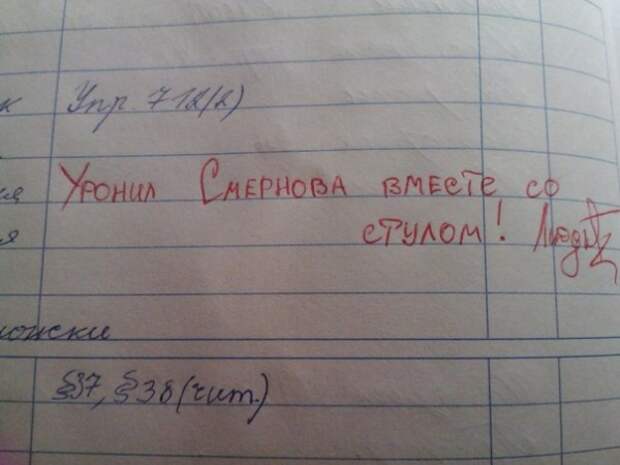 к Упр. 712(2)
ия Уронил Смернова вместе со
я стулом!
ложски
§37, §38 (чит.)